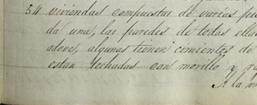 54 viviendas compuestas de varias pie
da una, las paredes de todas ellas
adoves, algunas tienen cimientos de
estan techadas con morillo y
A la m